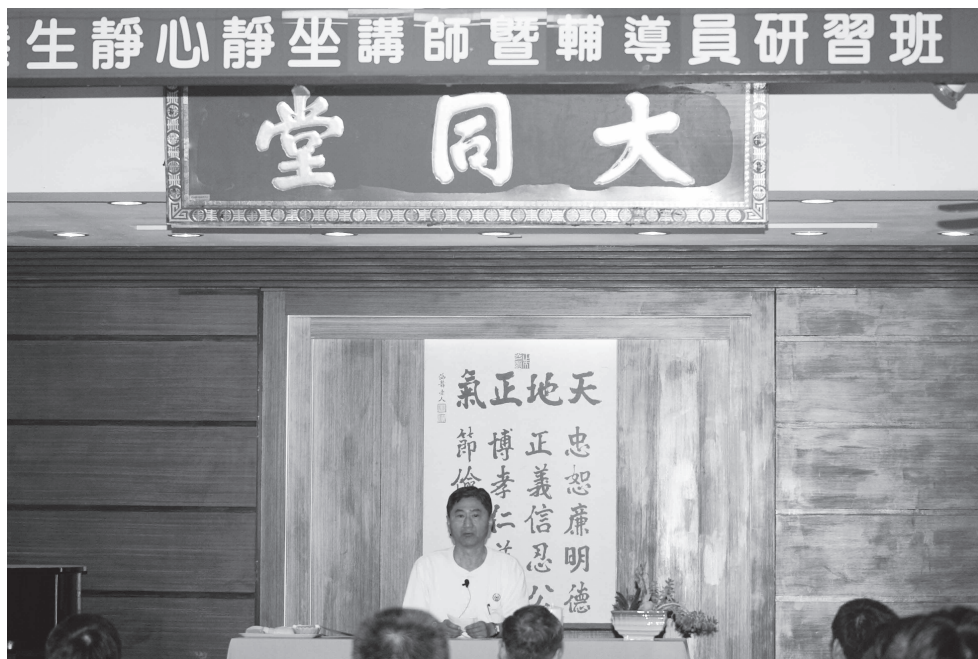 生靜心靜坐講師暨輔導員研習班
大同堂
天地正氣
忠恕廉明德
正義信忍公
博孝仁
節儉